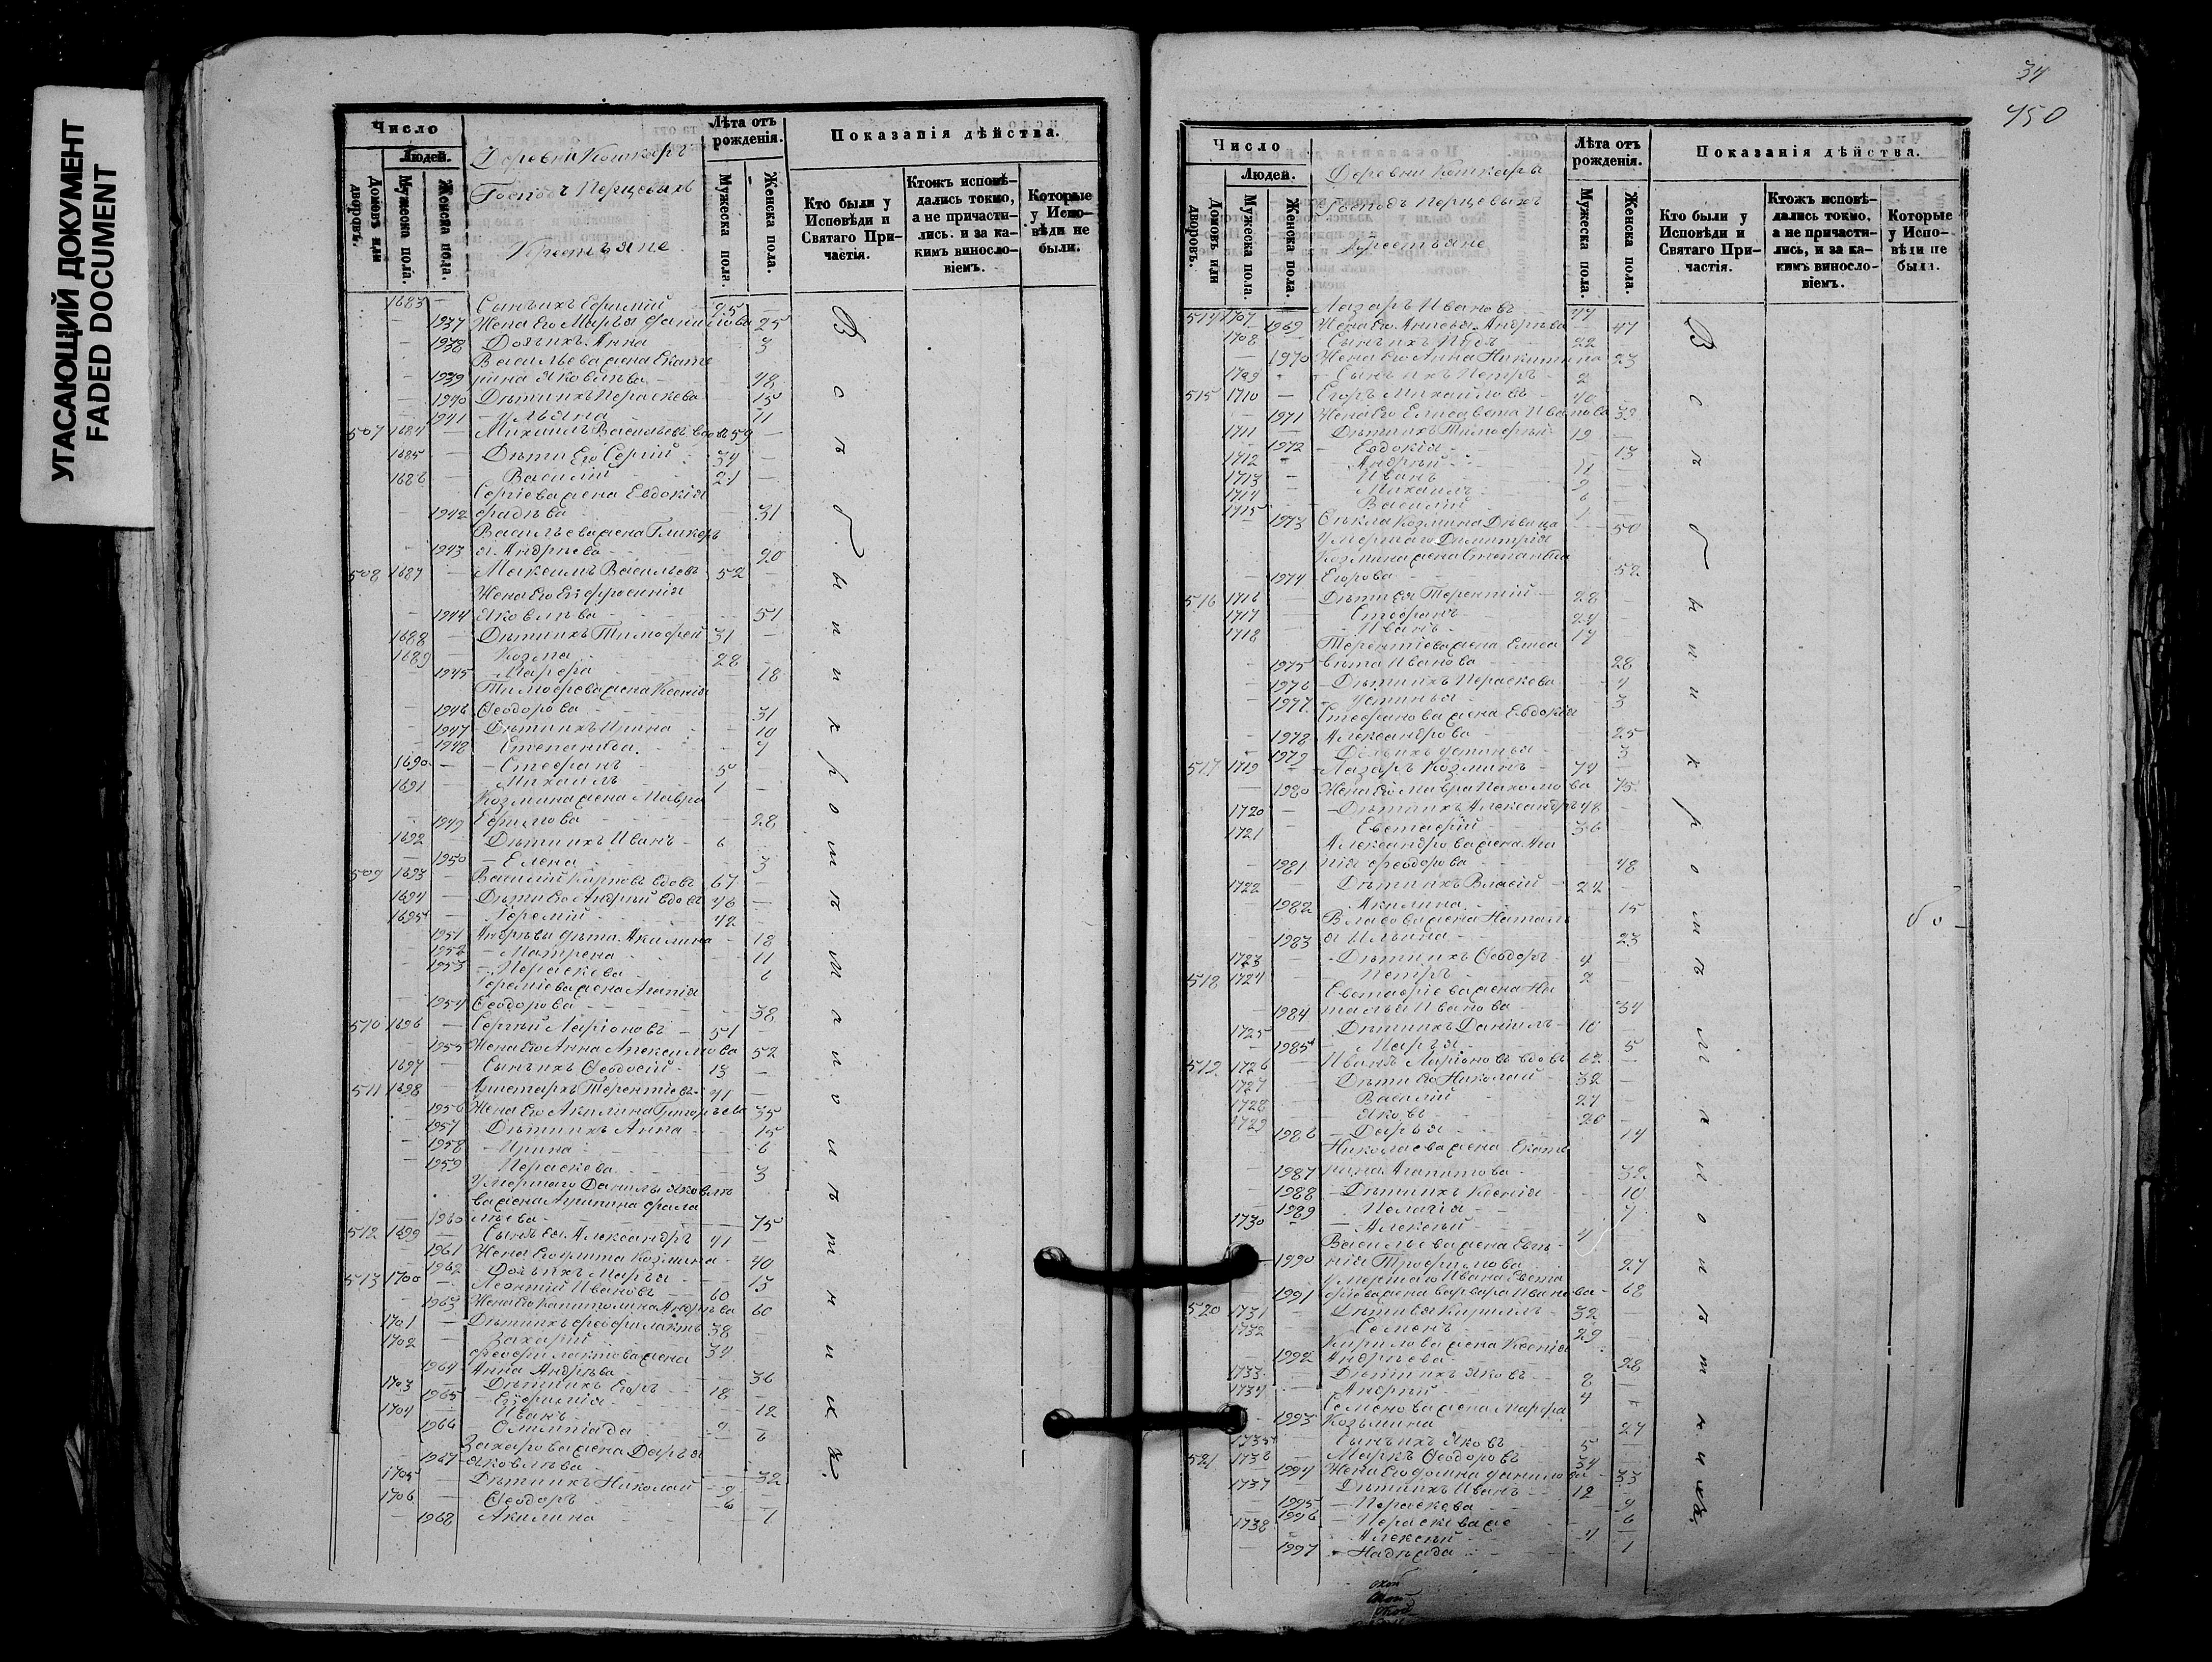 УГАСАЮЩИЙ ДОКУМЕНТ
FADED DOCUMENT
Число
Людей.
Домовъ или дворовъ.
Мужеска пола.
Женска пола.
Деревни Кошкаръ
Господъ Перцевыхъ
Крестьяне
Лѣта отъ рожденія.
Мужеска пола.
Женска пола.
Показанія дѣйства.
Кто были у Исповѣди и Святаго При-частія.
Ктожъ исповѣ-дались токмо, а не причасти-лись. и за ка-кимъ винослο-віемъ.
Которые у Испо-вѣди не были.
1683 — Сынъ ихъ Ефимій 25 —
1937 Жена его Марья Данилова 25
1938 Дочь ихъ Анна 3
Васильева жена Екате
1939 рина Яковлева 48
1940 Дѣти ихъ Параскева 15
1941 Ульяна 11
507 1684 — Михаилъ Васильевъ вдовъ 59 —
1685 — Дѣти Его Сергій 34 —
1686 — Василій 21 —
Сергіева жена Евдокія
1942 31
Васильева жена Гликер
1943 я Андреева 20
508 1687 — Максимъ Васильевъ 52 —
Жена Его Евфросинія
1944 Яковлева 51
1688 — Дѣти ихъ Тимофей 31 —
1689 — Козма 28 —
1945 Марфа 18
Тимофева жена Ксенія
1946 Ѳеодорова 31
1947 Дѣти ихъ Ирина 10
1948 Степанида 7
1690 — Стефанъ 5
1691 — Михаилъ 1 —
Козмина жена Мавра
1949 Ефимова 28
1692 — Дѣти ихъ Иванъ 6
1950 Елена 3
509 1693 — Василій Карповъ вдовъ 67 —
1694 — Дѣти Его Андрей вдовъ 46 —
1695 — Іеремій 42 —
1951 Андрѣевы дѣти Акилина 18
1952 Матрена 11
1953 Параскева 6
Іереміева жена Агапія
1954 Ѳеодорова 38
510 1696 — Сергѣй Ларіоновъ 51 —
1955 Жена Его Анна 52
1697 — Сынъ ихъ Ѳеодосій 13 —
511 1698 — Аристархъ Терентіевъ 41 —
1956 Жена Его Акилина Григорьева 35
1957 Дѣти ихъ Анна 15
1958 Ирина 6
1959 Параскева 3
Умершаго Данилы Яковле
ва жена
1960 75
512 1699 — Сынъ Ея Александръ 41 —
1961 Жена Его Улита Козмина 40
1962 Дочь ихъ Марья 13
513 1700 — Леонтій Ивановъ 60 —
1963 Жена Его Капитолина Андрѣева 60
1701 — Дѣти ихъ Феофилактъ 38
1702 — Захарій 34
Феофилактова жена
1964 Анна Андрѣева 36
1703 — Дѣти ихъ Егоръ 18
1965 Евфимія 12
1704 — Иванъ 9
1966 Олимпіада 6
Захарова жена Дарья
1967 Яковлева 32
1705 — Дѣти ихъ Николай 9
1706 — Ѳеодоръ 6
1968 Акилина 1
34
450
Число
Людей.
Домовъ или дворовъ.
Мужеска пола.
Женска пола.
Деревни Кошкаръ
Господъ Перцевыхъ
Крестьяне
Лѣта отъ рожденія.
Мужеска пола.
Женска пола.
Показанія дѣйства.
Кто были у Исповѣди и Святаго При-частія.
Ктожъ исповѣ-дались токмо, а не причасти-лись, и за ка-кимъ винослο-віемъ.
Которые у Испо-вѣди не были.
514 1707 — Лазаръ Ивановъ 47
1969 Жена Его Анисья Андрѣева 47
1708 Сынъ ихъ 22
1970 Жена Его Анна Никитина 23
1709 Сынъ ихъ Петръ 2
515 1710 — Егоръ Михайловъ 40
1971 Жена Его Елисавета Иванова 32
1711 — Дѣти ихъ Тимофѣй 19
1972 Евдокія 13
1712 Андрѣй 11
1713 — Иванъ 9
1714 — Михаилъ 6
1715 Василій 1
1973 Ѳекла Козмина Дѣвица 50
Умершаго Димитрія
Козмина жена Степанида
1974 Егорова 52
516 1716 Дѣти Ея Терентій 28
1717 Стефанъ 24
1718 Иванъ 17
Терентіева жена Елиса
1975 вета Иванова 28
1976 Дѣти ихъ Параскева 4
1977 Устинья 3
Стефанова жена Евдокія
1978 Александрова 25
1979 Дочь ихъ Устинья 3
517 1719 — Лазаръ Козминъ 77
1980 Жена Его Мавра Пахомова 75
1720 — Дѣти ихъ Александръ 48
1721 Евстафій 36
Александрова жена Ага
1981 пія Феодорова 48
1722 Дѣти ихъ Власій 24
1982 Акилина 15
Власова жена Наталь
1983 я Ильина 23
1723 Дѣти ихъ Ѳеодоръ 4
518 1724 — Петръ 2
Евстафіева жена На
1984 талья Иванова 34
1725 — Дѣти ихъ Даніилъ 10
1985 Марья 5
519 1726 Иванъ Ларіоновъ вдовъ 62
1727 Дѣти Его Николай 32
1728 Василій 27
1729 Яковъ 20
1986 Дарья 14
Николаева жена Екате
1987 рина Агапитова 32
1988 Дѣти ихъ Ксенія 10
1989 Пелагія 7
1730 Алексѣй 4
Васильева жена Евге-
1990 нія Трофимова 27
Умершаго Ивана Евста
1991 фіева жена Варвара Иванова 68
520 1731 — Дѣти Ея Кириллъ 32
1732 Семенъ 29
Кирилова жена Ксенія
1992 Андрѣева 28
1733 Дѣти ихъ Яковъ 8
1734 Андрей 4
Семенова жена Марфа
1993 Козьмина 27
1735 Сынъ ихъ Яковъ 5
521 1736 Маркъ Ѳеодоровъ 34
1994 Жена Его Домна Данилова 33
1737 Дѣти ихъ Иванъ 12
1995 Параскева 9
1996 Параскева же 6
1738 Алексѣй 4
1997 Надежда 1